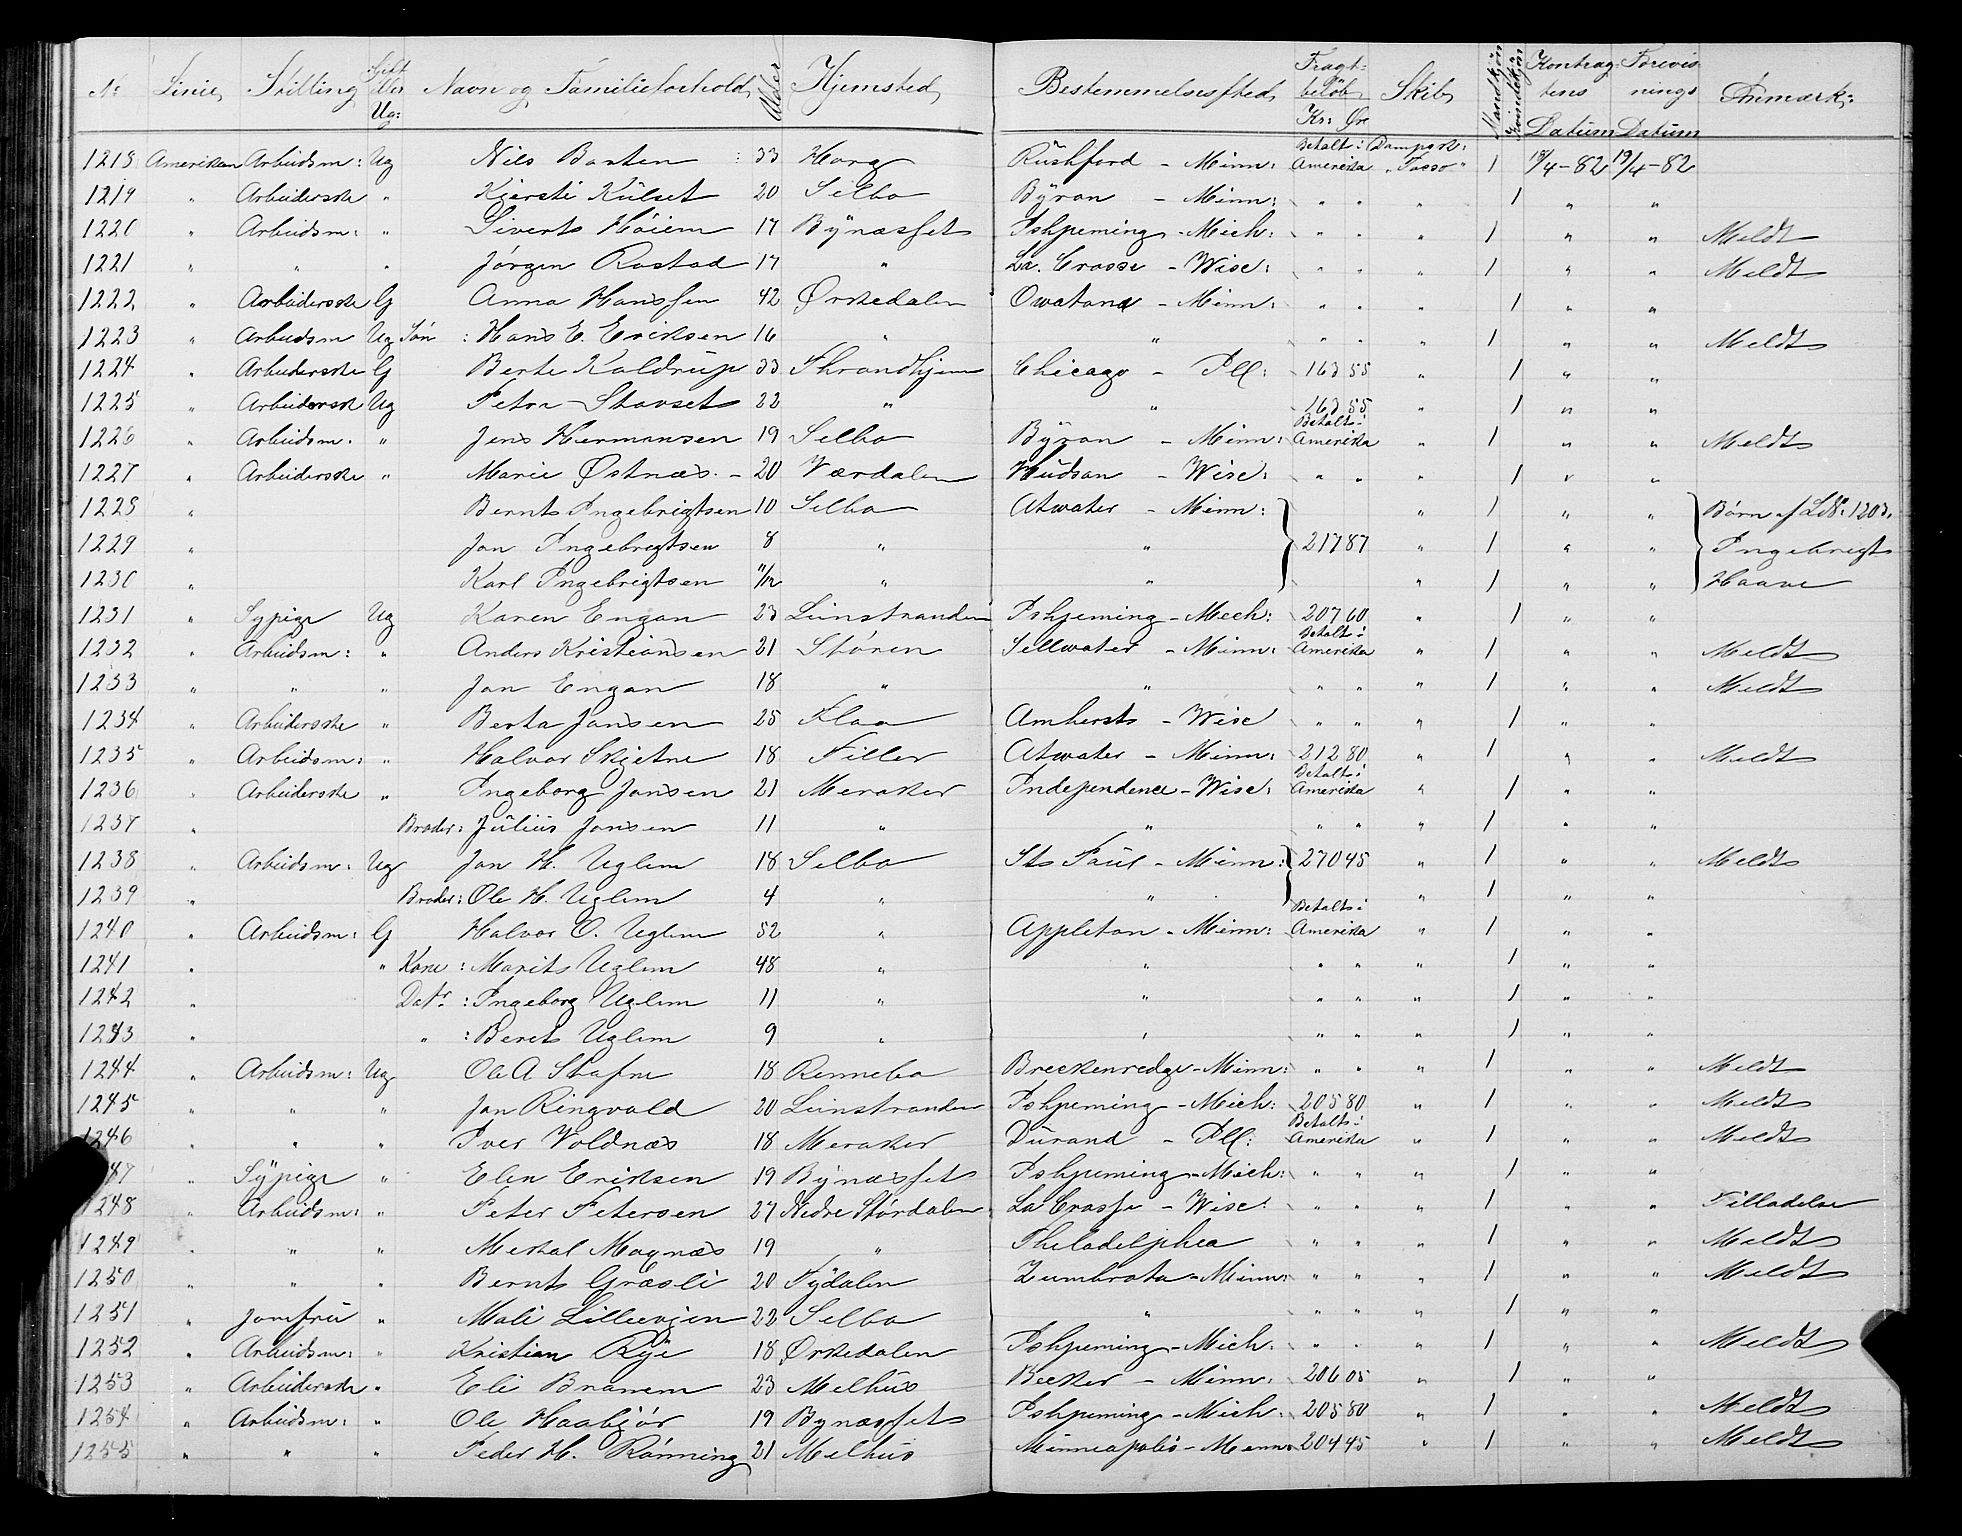 No Linie Stilling Gift eller Ug: Navn og Familieforhold Alder Hjemsted Bestemmelsessted Fragt-beløb Kr: Øre Skib Mandkjøn Kvindekjøn Kontraktens Datum Forevisnings Datum Anmærk:
1218 Amerikan Arbeidsm: Ug Nils Basten 33 Horg Rushford - Minn: Betalt i Amerika Dampsk: "Tasso" 1 18/4-82 19/4-82
1219 " Arbeiderske " Kjersti Kulset 20 Selbo Byron - Minn: " " " 1 " "
1220 " Arbeidsm: " Siverts Høiem 17 Bynæsset Ishpeming - Mich: " " " 1 " " Meldt
1221 " " " Jørgen Rostad 17 " La. Crosse - Wisc: " " " 1 " " Meldt
1222 " Arbeiderske G Anna Hanssen 42 Ørkedalen Owatona - Minn: " " " 1 " "
1223 " Arbeidsm Ug Søn : Hans E. Eriksen 16 " " " " " 1 " " Meldt
1224 " Arbeiderske G Berte Kaldrup 33 Throndhjem Chicago - Ill: 163 55 " 1 " "
1225 " Arbeidersk Ug Petra Stavset 22 " " 163 55 " 1 " "
1226 " Arbeidsm. " Jens Hermansen 19 Selbo Byron - Minn: Betalt i Amerika " 1 " " Meldt
1227 " Arbeiderske " Marie Østnæs - 20 Værdalen Hudson - Wisc: " " " 1 " "
1228 " Bernts Ingebrigtsen 10 Selbo Atwater - Minn: " 1 " " Børn af LNo: 1203.
1229 " Jon Ingebrigtsen 8 " " 217 87 " 1 " " Ingebrigt
1230 " Karl Ingebrigtsen 11/12 " " " 1 " " Haave
1231 " Sypige Ug Karen Engan 23 Leinstranden Ishpeming - Mech: 207 60 " 1 " "
1232 " Arbeidsm: " Anders Kristiansen 21 Støren Sellwater - Minn: Betalt i Amerika " 1 " " Meldt
1233 " " " Jon Engan 18 " " " " " 1 " " Meldt
1234 " Arbeiderske " Berta Jonsen 25 Flaa Amhersts - Wisc " " " 1 " "
1235 " Arbeidsm: " Halvor Skjetne 18 Tiller Atwater - Minn: 212 80 " 1 " " Meldt
1236 " Arbeiderske " Ingeborg Jonsen 21 Meraker Independence - Wisc: Betalt i Amerika " 1 " "
1237 " Broder: Julius Jonsen 11 " " " " " 1 " "
1238 " Arbeidsm: Ug Jon H. Uglem 18 Selbo St Paul - Minn: 270 45 " 1 " " Meldt
1239 " Broder: Ole H. Uglem 4 " " " 1 " "
1240 " Arbeidsm: G Halvor O. Uglem 52 " Appleton - Minn: Betalt i Amerika " 1 " "
1241 " " Kone : Marits Uglem 48 " " " " " 1 " "
1242 " Datr : Ingeborg Uglem 11 " " " " " 1 " "
1243 " " : Berets Uglem 9 " " " " " 1 " "
1244 " Arbeidsm: Ug Ole A Stafne 18 Rennebo Breckenredge - Minn: " " " 1 " " Meldt
1245 " " " Jon Ringvold 20 Leinstranden Ishpeming - Mich: 205 80 " 1 " " Meldt
1246 " " " Iver Voldnæs 18 Meraker Durand - Ill: Betalt i Amerika " 1 " " Meldt
47 " Sypige " Elen Eriksen 19 Bynæsset Ishpeming - Mich: " " " 1 " "
1248 " Arbeidsm: " Peter Petersen 27 Nedre Størdalen La Crosse - Wisc: " " " 1 " " Tilladelse
1249 " " " Meskal Mognæs 19 " Philadelphea " " " 1 " " Meldt
1250 " " " Bernts Græsli 20 Tydalen Zumbrota - Minn: " " " 1 " " Meldt
1251 " Jomfru " Mali Lillevjen 22 Selbo " " " " 1 " "
1252 " Arbeidsm: " Kristian Rye 18 Ørkedalen Ishpeming - Mich: " " " 1 " " Meldt
1253 " Arbeiderske " Eli Branem 23 Melhus Becker - Minn: 206 05 " 1 " "
1254 " Arbeidsm: " Ole Haabjør 19 Bynæsset Ishpeming - Mich: 205 80 " 1 " " Meldt
1255 " " " Peder H. Rønning 21 Melhus Minneapolis - Menn: 204 45 " 1 " " Meldt